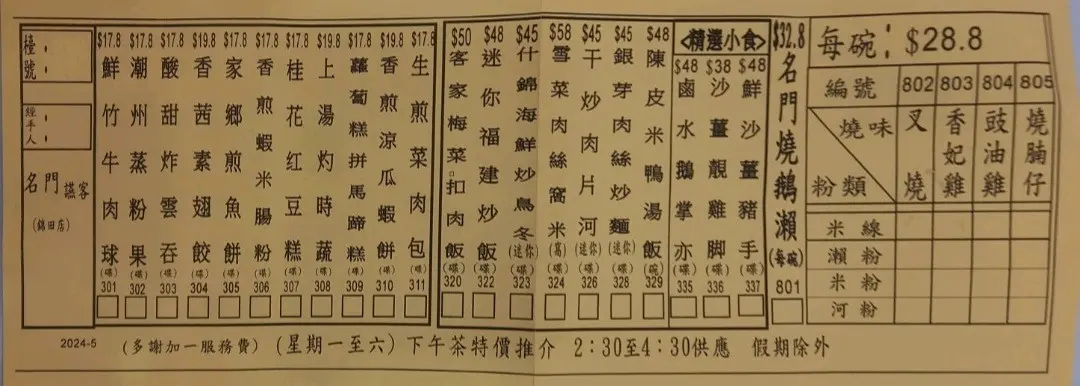 檯號：
經手人：
名門讌客
(錦田店)
$17.8 鮮竹牛肉球 (碟) 301
$17.8 潮州蒸粉果 (碟) 302
$17.8 酸甜炸雲吞 (碟) 303
$19.8 香茜素翅餃 (碟) 304
$17.8 家鄉煎魚餅 (碟) 305
$17.8 香煎蝦米腸粉 (碟) 306
$17.8 桂花红豆糕 (碟) 307
$19.8 上湯灼時蔬 (碟) 308
$17.8 蘿蔔糕拼馬蹄糕 (碟) 309
$19.8 香煎涼瓜蝦餅 (碟) 310
$17.8 生煎菜肉包 (碟) 311
$50 客家梅菜扣肉飯 (碟) 320
$48 迷你福建炒飯 (碟) 322
$45 什錦海鮮炒烏冬 (迷你) 323
$58 雪菜肉絲窩米 (窩) 324
$45 干炒肉片河 (迷你) 326
$45 銀芽肉絲炒麵 (迷你) 328
$48 陳皮米鴨湯飯 (碗) 329
<精選小食>
$48 鹵水鵝掌亦 (碟) 335
$38 沙薑靚雞脚 (碟) 336
$48 鮮沙薑豬手 (碟) 337
$32.8 名門燒鵝瀨 (每碗) 801
每碗：$28.8
編號 802 803 804 805
燒味 粉類 叉燒 香妃雞 豉油雞 燒腩仔
米線
瀨粉
米粉
河粉
2024-5 (多謝加一服務費) (星期一至六) 下午茶特價推介 2:30至4:30供應 假期除外